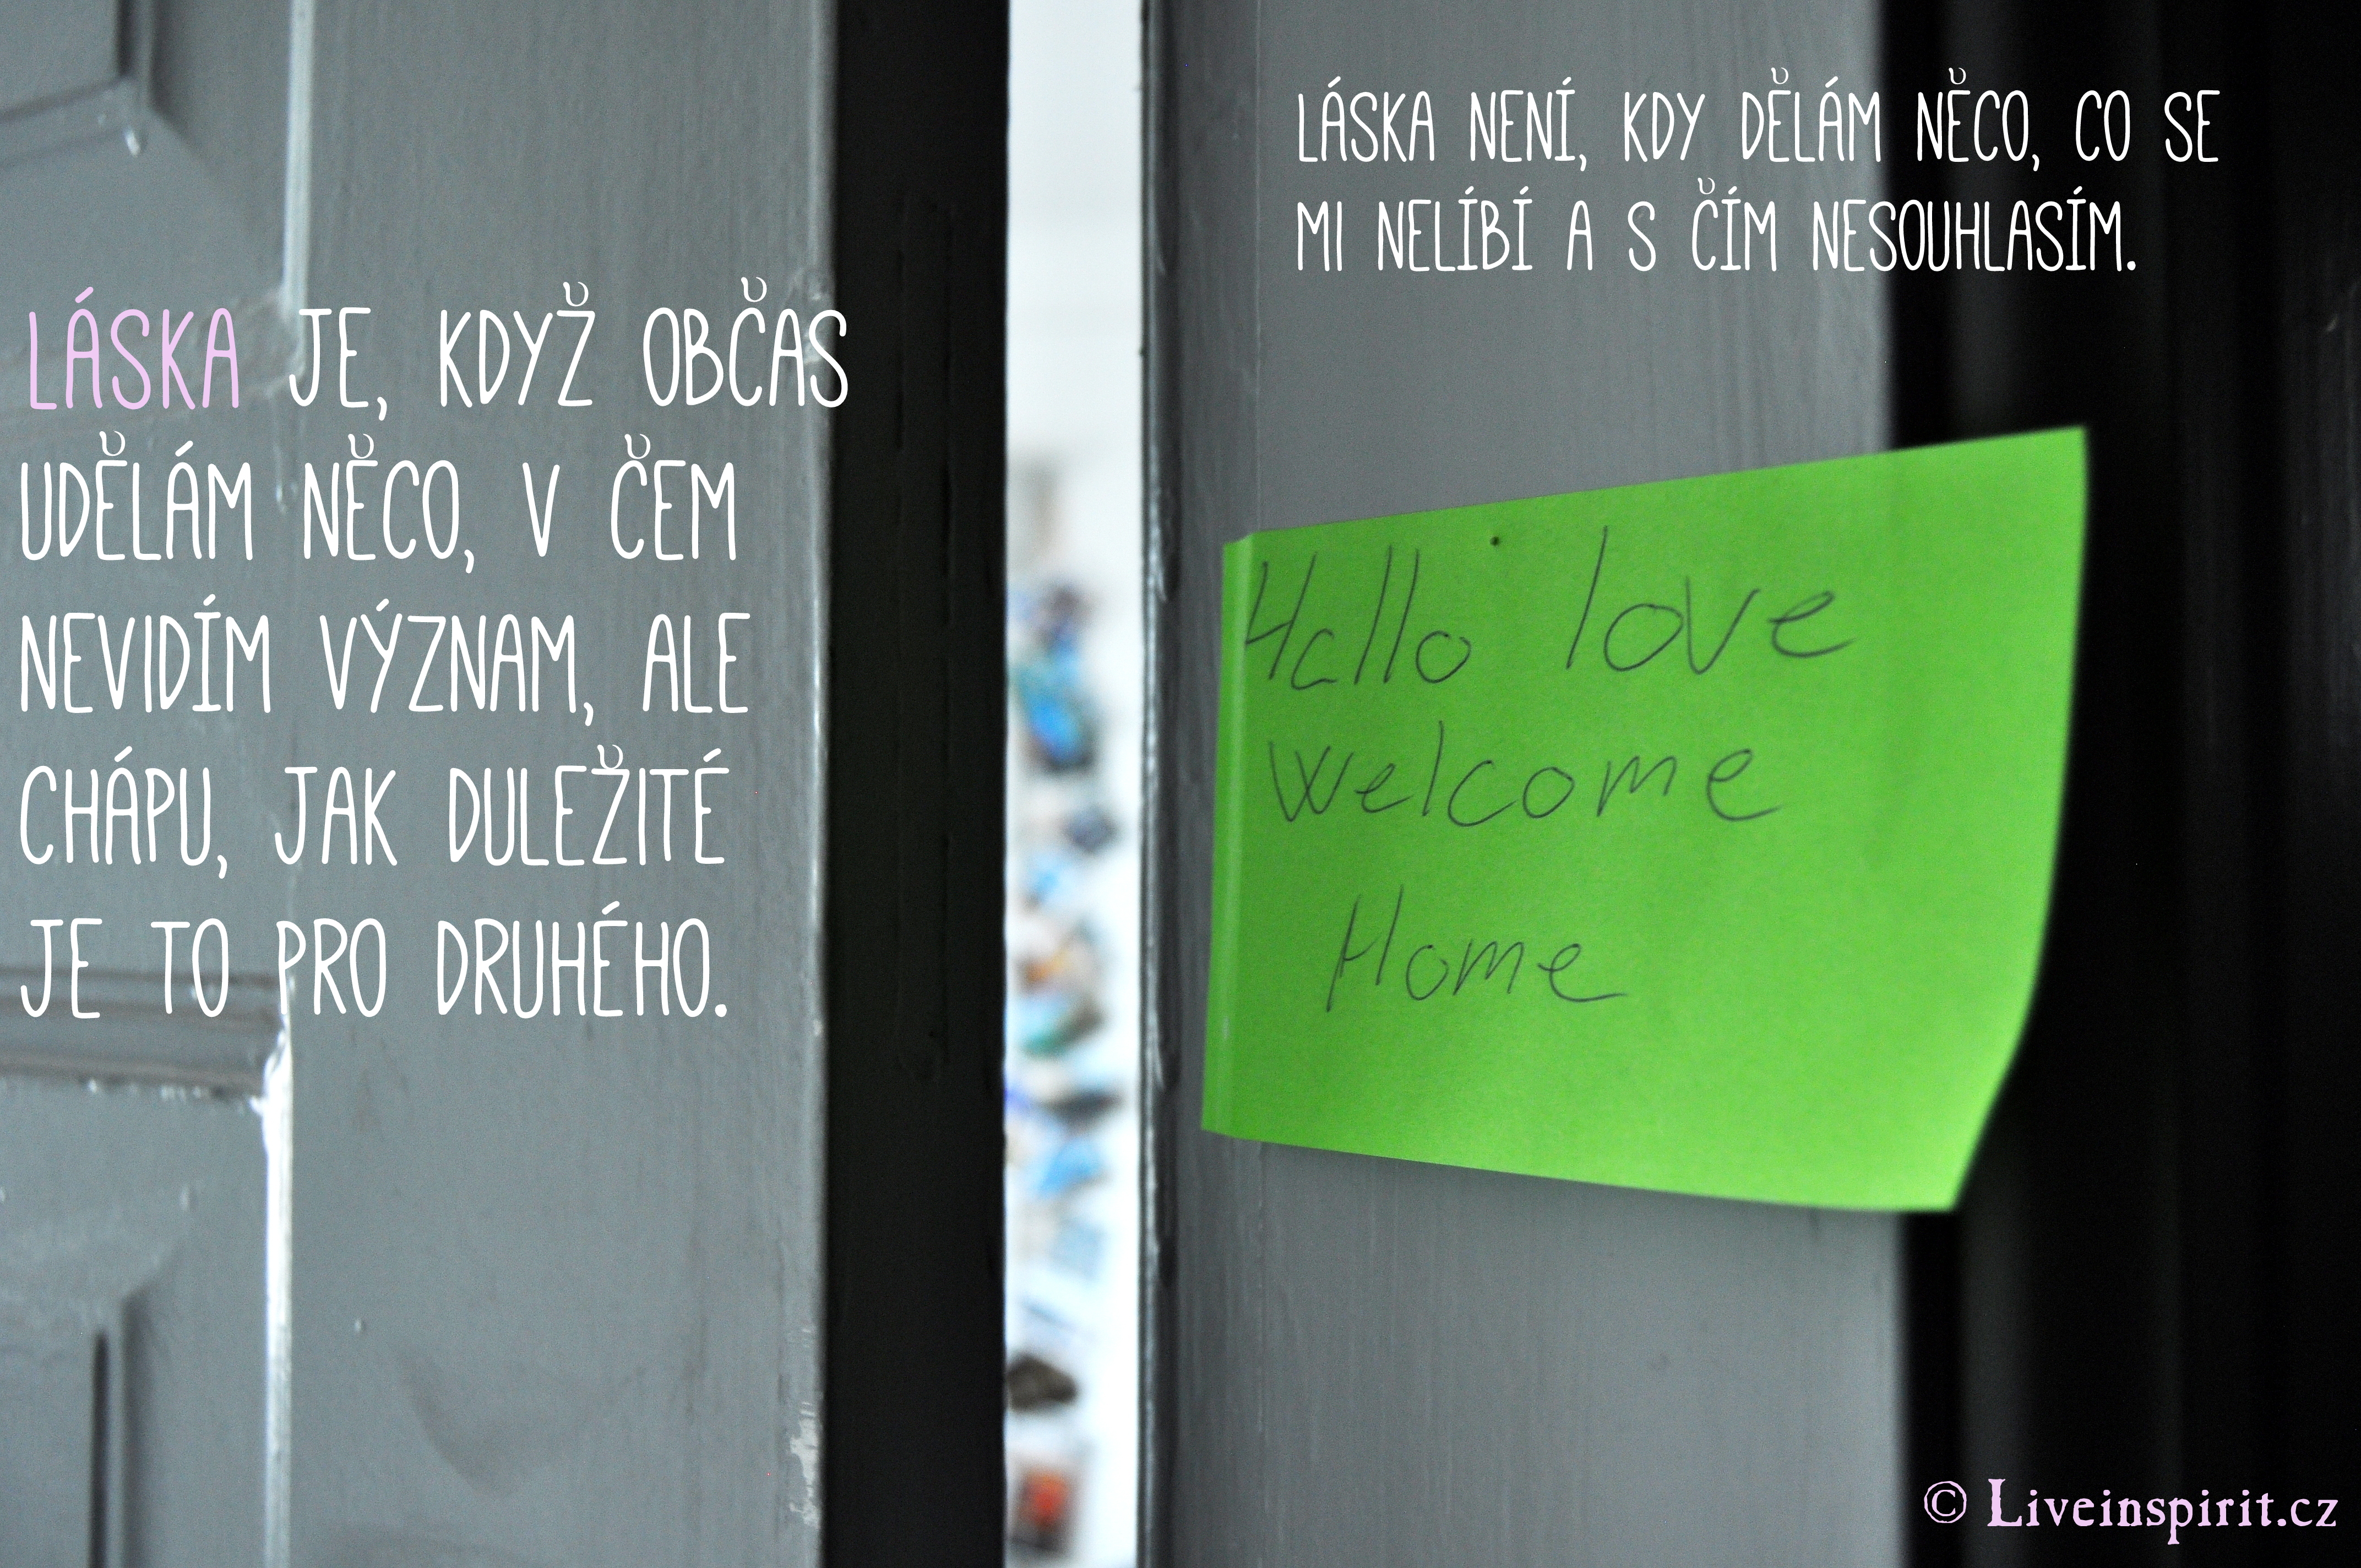 LÁSKA NENÍ, KDY DĚLÁM NĚCO, CO SE
MI NELÍBÍ A S ČÍM NESOUHLASÍM.
LÁSKA JE, KDYŽ OBČAS
UDĚLÁM NĚCO, V ČEM
NEVIDÍM VÝZNAM, ALE
CHÁPU, JAK DULEŽITÉ
JE TO PRO DRUHÉHO.
Hello love
welcome
Home
© Liveinspirit.cz